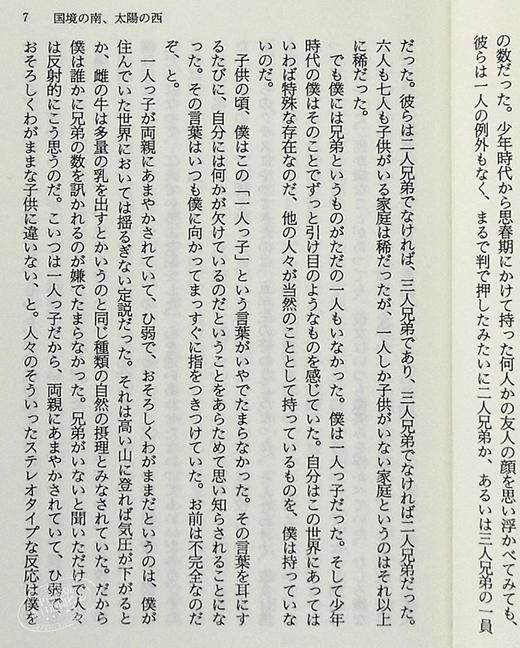 の数だった。少年時代から思春期にかけて持った何人かの友人の顔を思い浮かべてみても、
彼らは一人の例外もなく、まるで判で押したみたいに二人兄弟か、あるいは三人兄弟の一員
7 国境の南、太陽の西
だった。彼らは二人兄弟でなければ、三人兄弟であり、三人兄弟でなければ二人兄弟だった。
六人も七人も子供がいる家庭は稀だったが、一人しか子供がいない家庭というのはそれ以上
に稀だった。
でも僕には兄弟というものがただの一人もいなかった。僕は一人っ子だった。そして少年
時代の僕はそのことでずっと引け目のようなものを感じていた。自分はこの世界にあっては
いわば特殊な存在なのだ、他の人々が当然のこととして持っているものを、僕は持っていな
いのだ。
子供の頃、僕はこの「一人っ子」という言葉がいやでたまらなかった。その言葉を耳にす
るたびに、自分には何かが欠けているのだということをあらためて思い知らされることにな
った。その言葉はいつも僕に向かってまっすぐに指をつきつけていた。お前は不完全なのだ
ぞ、と。
一人っ子が両親にあまやかされていて、ひ弱で、おそろしくわがままだというのは、僕が
住んでいた世界においては揺るぎない定説だった。それは高い山に登れば気圧が下がると
か、雌の牛は多量の乳を出すとかいうのと同じ種類の自然の摂理とみなされていた。だから
僕は誰かに兄弟の数を訊かれるのが嫌でたまらなかった。兄弟がいないと聞いただけで人々
は反射的にこう思うのだ。こいつは一人っ子だから、両親にあまやかされていて、ひ弱で、
おそろしくわがままな子供に違いない、と。人々のそういったステレオタイプな反応は僕を